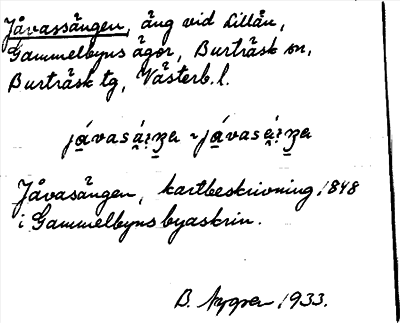 Jåvassängen, äng vid Lillån,
Gammelbyns ägor, Burträsk sn,
Burträsk tg, Västerb. l.
Jåvasängen, kartbeskrivning 1848
i Gammelbyns byaskrin.
B. Nygren 1933.